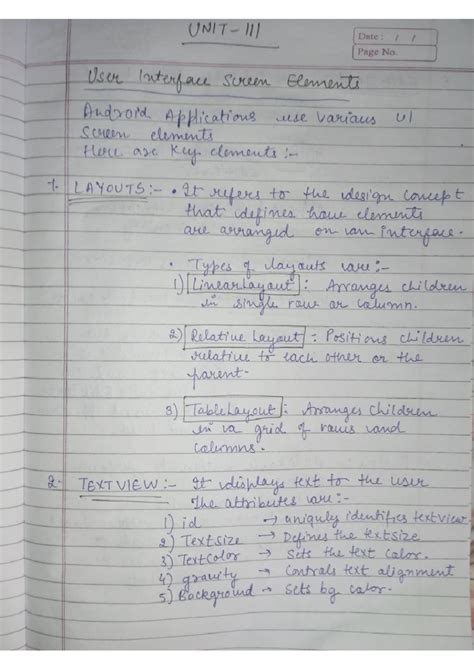 UNIT-III
Date: / /
Page No.
User Interface Screen Elements
Android Applications use various UI
screen elements
Here are Key elements :-
1. LAYOUTS :- • It refers to the design concept
that defines how elements
are arranged on an interface.
• Types of layouts are :-
1) LinearLayout : Arranges children
in single row or column.
2) Relative Layout : Positions children
relative to each other or the
parent.
3) TableLayout : Arranges children
in a grid of rows and
columns.
2. TEXTVIEW :- It displays text to the user
The attributes are :-
1) id → uniquly identifies textview
2) TextSize → Defines the textsize
3) TextColor → Sets the text color.
4) gravity → Controls text alignment
5) Background → Sets bg color.